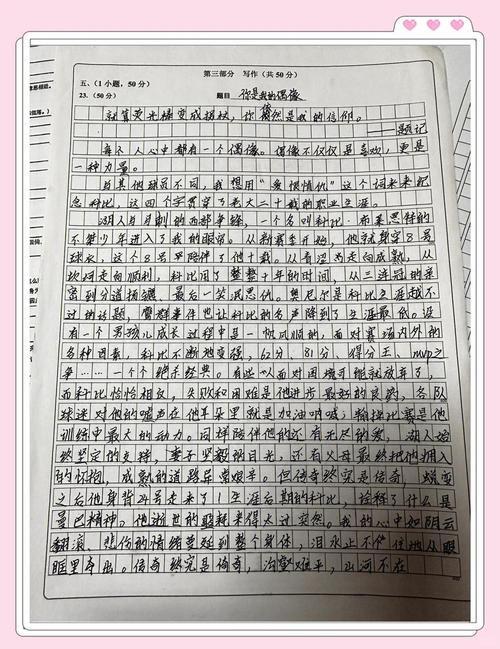 第三部分 写作（共50分）
五、（1小题，50分）
23.（50分） 题目 你是我的偶像
就算荧光棒变成拐杖，你依然是我的信仰。
——题记
每个人心中都有一个偶像。偶像不仅仅是喜欢，更是
一种力量。
与其他球员不同，我想用“爱恨情仇”这个词来来纪
念科比，这四个字贯穿了老大二十载的职业生涯。
湖人与马刺的西部争锋，一个名叫科比·布莱恩特的
不羁少年进入了我的眼帘。从新赛季开始，他就身穿8号
球衣，这个8号平陪伴了他十载。从青涩走向成熟，从
坎坷走向顺利，科比用了整整十年的时间，从三连冠的亲
密到分道扬镳、最后一笑泯恩仇。奥尼尔是科比生涯越不
过的话题，鹰郡事件也让科比的名声降到了生涯最低。没
有一个男孩儿成长过程中是一帆风顺的，面对赛场内外的
各种因素，科比不断地变强，62分、81分、得分王、MVP之
争……一个个绝杀经典。有些人面对困境可能就放弃了，
而科比恰恰相反，失败和困难是他进步最好的良药，各队
球迷对他的嘘声在他耳朵里就是加油呐喊；输掉比赛是他
训练中最大的动力。同样陪伴他的还有无尽的爱，湖人始
终坚定的支持，妻子坚毅的目光，还有父母最终把他拥入
的怀抱，成熟的道路异常艰辛。但传奇终究是传奇，蜕变
之后他身背24号走来了！生涯后期的科比，诠释了什么是
曼巴精神，他逝世的噩耗来得太过突然。我的心中如阴云
翻滚、悲伤的情绪蔓延到整个身体，泪水止不住地从眼
眶里奔出。传奇终究是传奇，沟壑难平，山河不在